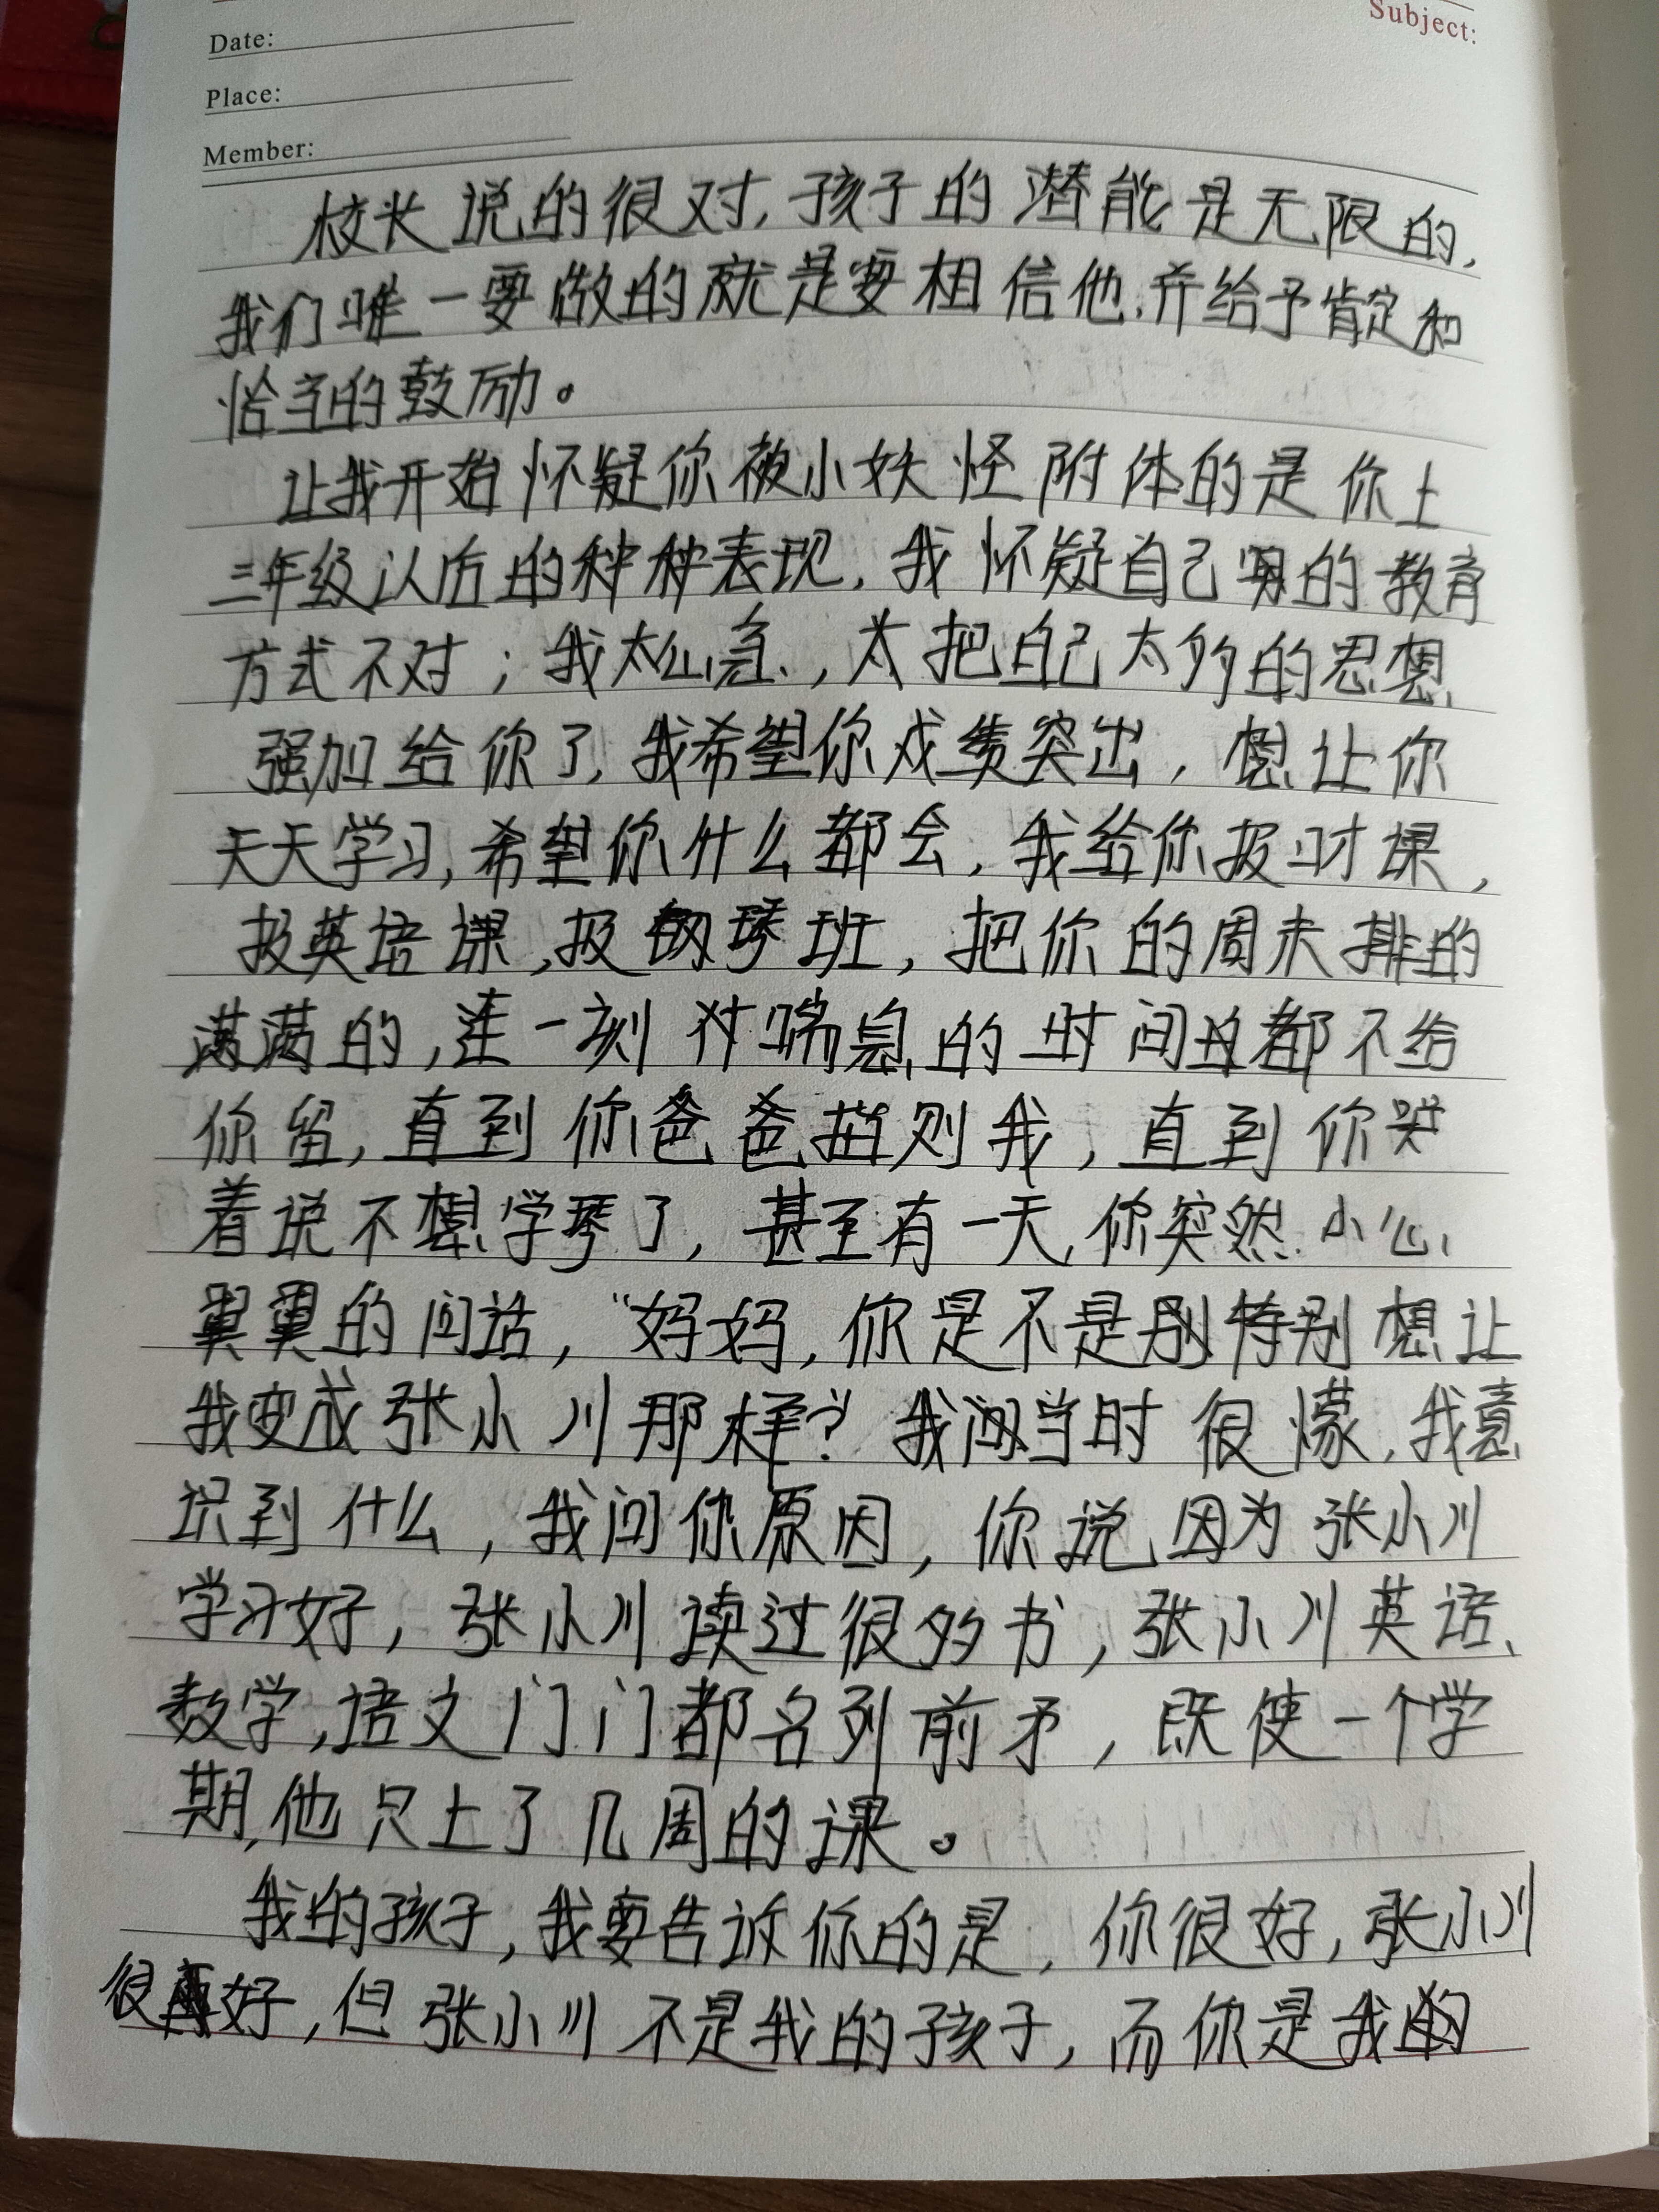 Subject:
Date:
Place:
Member:
校长说的很对,孩子的潜能是无限的,
我们唯一要做的就是要相信他,并给予肯定和
恰当的鼓励。
让我开始怀疑你被小妖怪附体的是你上
三年级以后的种种表现,我怀疑自己的教育
方式不对;我太心急,太把自己太多的思想
强加给你了,我希望你成绩突出,想让你
天天学习,希望你什么都会,我给你报习才课,
报英语课,报钢琴班,把你的周末排的
满满的,连一刻对喘息的时间都不给
你留,直到你爸爸指则我,直到你哭
着说不想学琴了,甚至有一天,你突然小心
翼翼的问话,“妈妈,你是不是特别想让
我变成张小川那样?我当时很懞,我意
识到什么,我问你原因,你说因为张小川
学习好,张小川读过很多书,张小川英语、
数学,语文门门都名列前矛,既使一个学
期,他只上了几周的课。
我的孩子,我要告诉你的是,你很好,张小川
很好,但张小川不是我的孩子,而你是我的